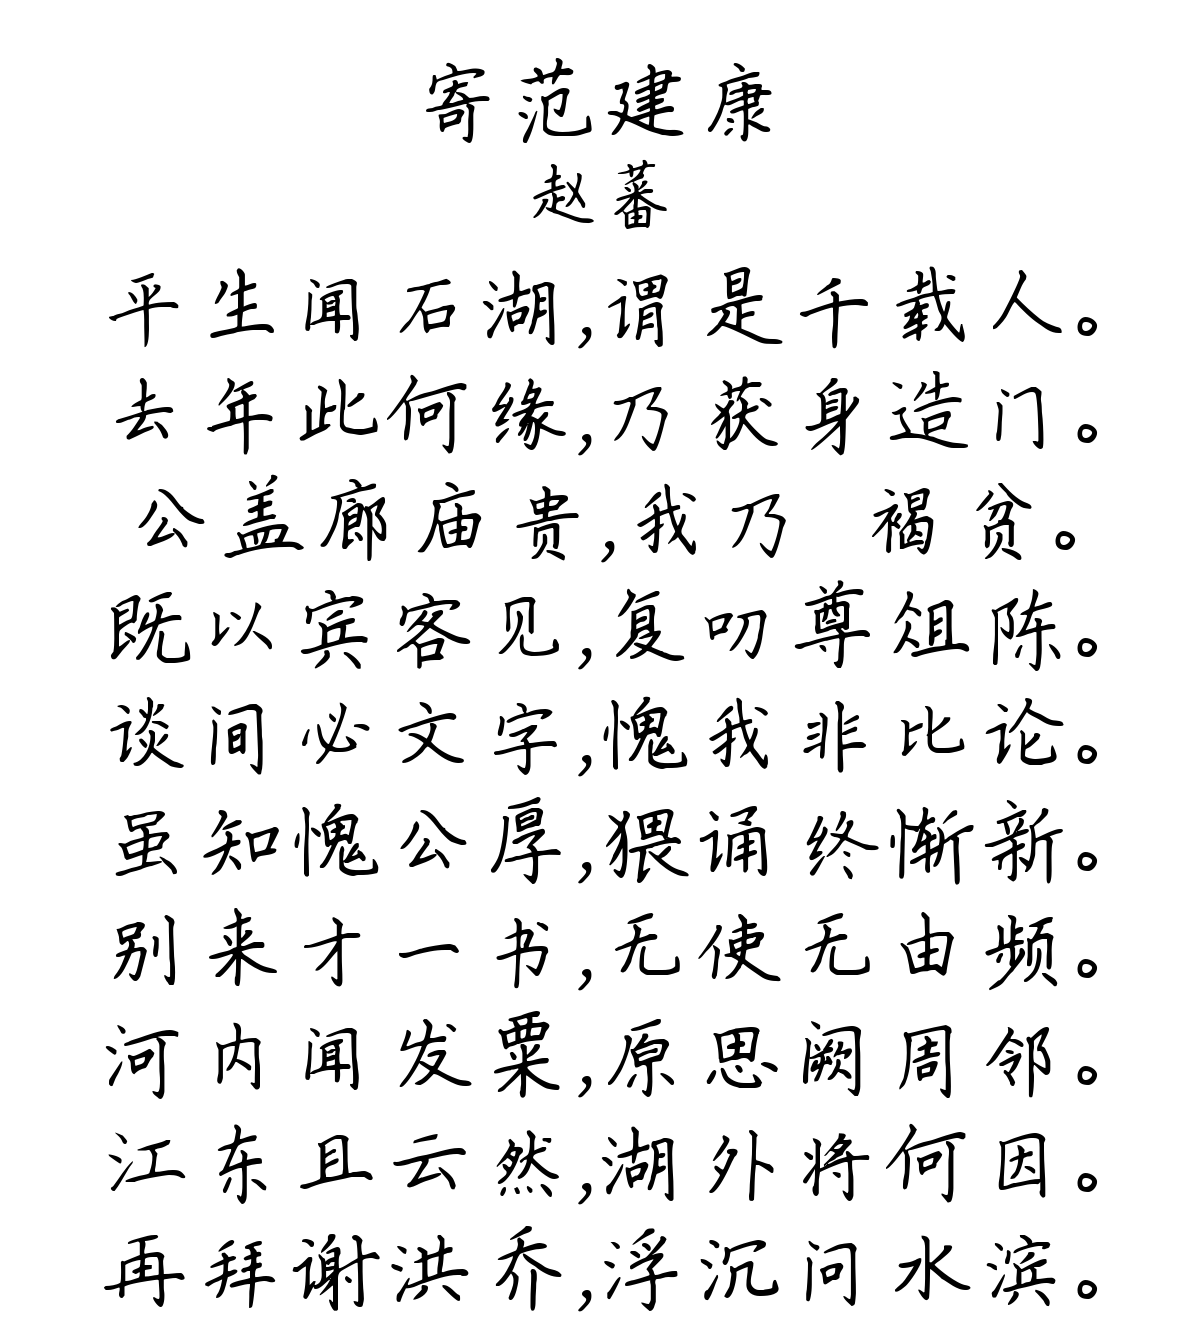 寄范建康
赵蕃
平生闻石湖,谓是千载人。
去年此何缘,乃获身造门。
公盖廊庙贵,我乃 褐贫。
既以宾客见,复叨尊俎陈。
谈间必文字,愧我非比论。
虽知愧公厚,猥诵终惭新。
别来才一书,无使无由频。
河内闻发粟,原思阙周邻。
江东且云然,湖外将何因。
再拜谢洪乔,浮沉问水滨。